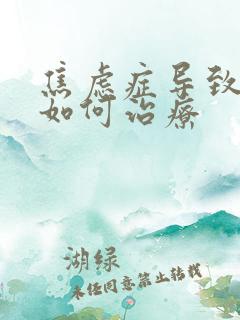 焦虑症导致
如何治疗
湖绿
未经同意禁止转载